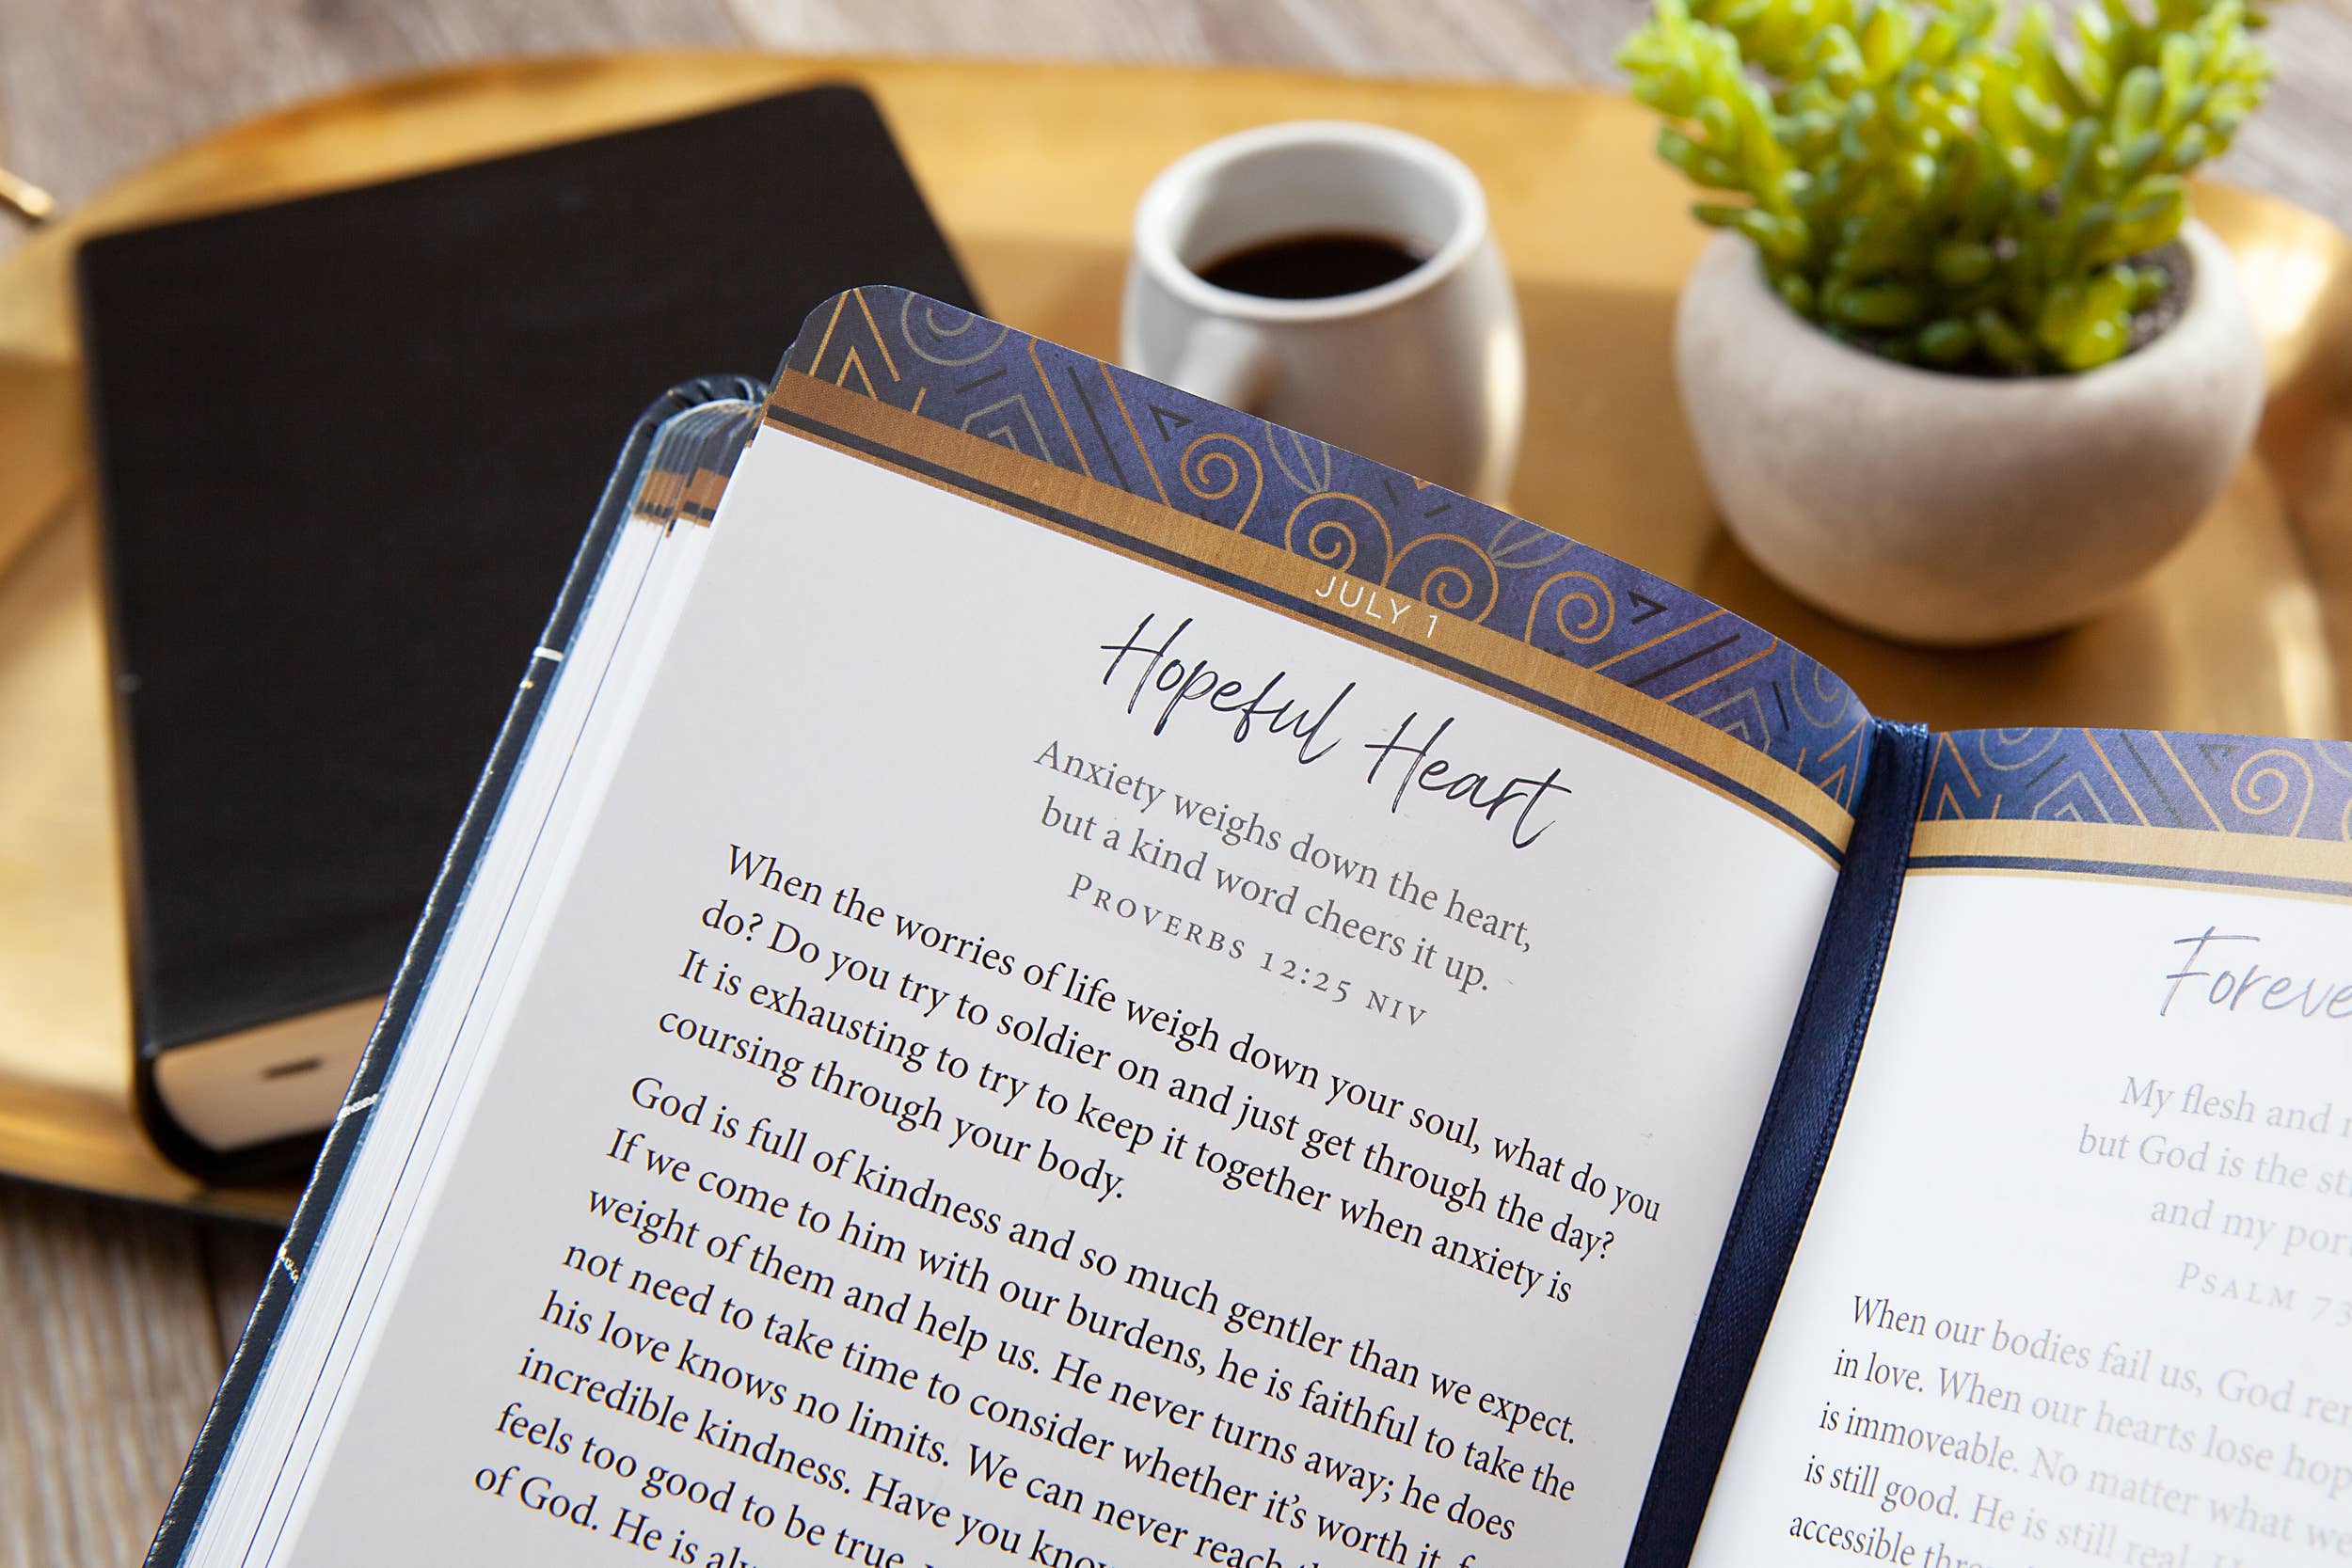 JULY 1
Hopeful Heart
Anxiety weighs down the heart,
but a kind word cheers it up.
PROVERBS 12:25 NIV
When the worries of life weigh down your soul, what do you
do? Do you try to soldier on and just get through the day?
It is exhausting to try to keep it together when anxiety is
coursing through your body.
God is full of kindness and so much gentler than we expect.
If we come to him with our burdens, he is faithful to take the
weight of them and help us. He never turns away; he does
not need to take time to consider whether it's worth it,
his love knows no limits. We can never reach
incredible kindness. Have you
feels too good to be true.
of God. He is
My flesh and
but God is the
and my
PSALM
When our bodies fail us, God
in love. When our hearts lose
is immoveable. No matter what
is still good. He is still
accessible